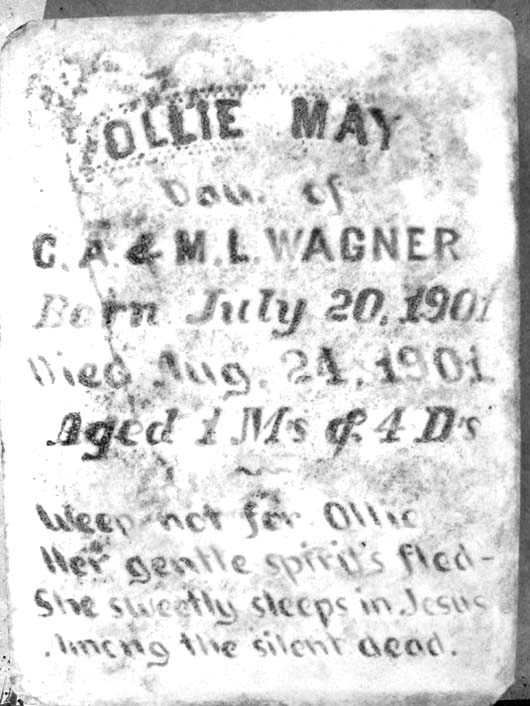 OLLIE MAY
Dau. of
C. A. & M. L. WAGNER
Born July 20, 1901
Died Aug. 24, 1901
Aged 1 Ms & 4 D's
Weep not for Ollie
Her gentle spirit's fled-
She sweetly sleeps in Jesus
Among the silent dead.